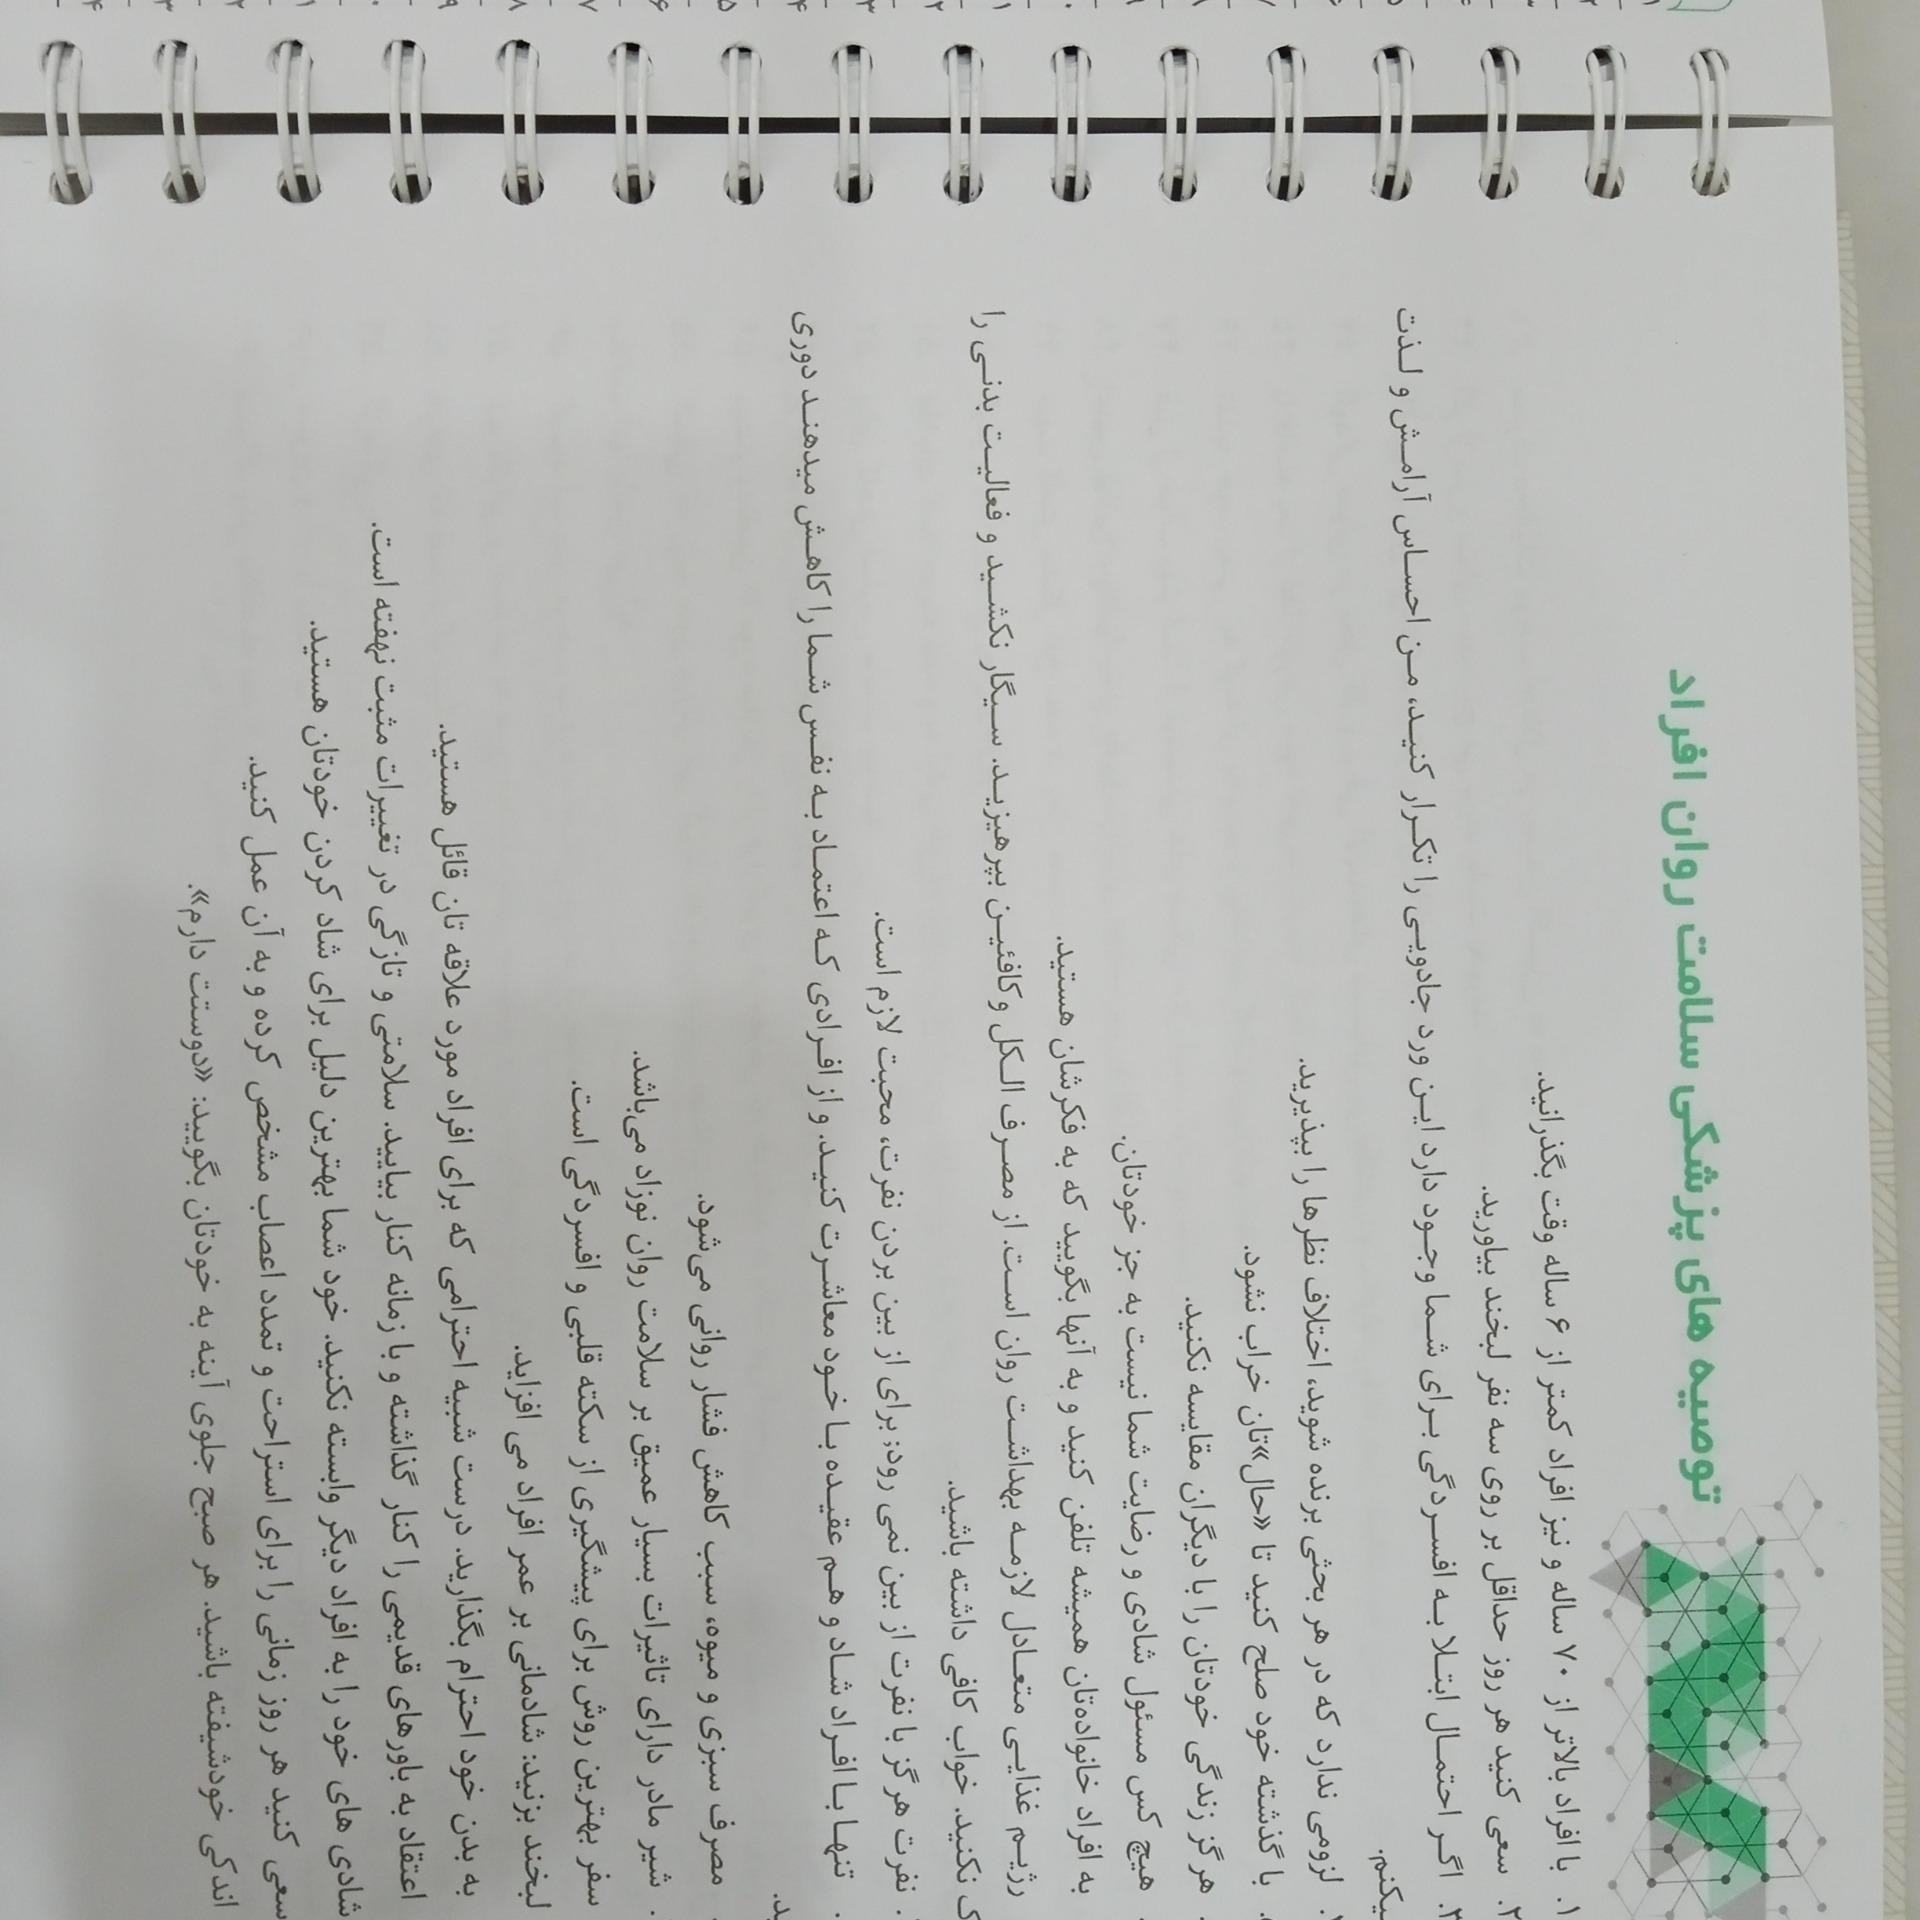 توصیه های پزشکی سلامت روان افراد
۱. با افراد بالاتر از ۷۰ ساله و نیز افراد کمتر از ۶ ساله وقت بگذرانید.
۲. سعی کنید هر روز حداقل بر روی سه نفر لبخند بیاورید.
۳. اگر احتمال ابتلا به افسردگی برای شما وجود دارد این ورد جادویی را تکرار کنید، من احساس آرامش و لذت
میکنم.
لزومی ندارد که در هر بحثی برنده شوید، اختلاف نظرها را بپذیرید.
با گذشته خود صلح کنید تا «حال»تان خراب نشود.
هرگز زندگی خودتان را با دیگران مقایسه نکنید.
هیچ کس مسئول شادی و رضایت شما نیست به جز خودتان.
به افراد خانواده‌تان همیشه تلفن کنید و به آنها بگویید که به فکرشان هستید.
رژیم غذایی متعادل لازمه بهداشت روان است. از مصرف الکل و کافئین بپرهیزید. سیگار نکشید و فعالیت بدنی را
نکنید. خواب کافی داشته باشید.
نفرت هرگز با نفرت از بین نمی رود: برای از بین بردن نفرت، محبت لازم است.
تنها با افراد شاد و هم عقیده با خود معاشرت کنید. و از افرادی که اعتماد به نفس شما را کاهش میدهند دوری
مصرف سبزی و میوه، سبب کاهش فشار روانی می‌شود.
شیر مادر دارای تاثیرات بسیار عمیق بر سلامت روان نوزاد می‌باشد.
سفر بهترین روش برای پیشگیری از سکته قلبی و افسردگی است.
لبخند بزنید: شادمانی بر عمر افراد می افزاید.
به بدن خود احترام بگذارید. درست شبیه احترامی که برای افراد مورد علاقه تان قائل هستید.
اعتقاد به باورهای قدیمی را کنار گذاشته و با زمانه کنار بیایید. سلامتی و تازگی در تغییرات مثبت نهفته است.
شادی های خود را به افراد دیگر وابسته نکنید. خود شما بهترین دلیل برای شاد کردن خودتان هستید.
سعی کنید هر روز زمانی را برای استراحت و تمدد اعصاب مشخص کرده و به آن عمل کنید.
اندکی خودشیفته باشید. هر صبح جلوی آینه به خودتان بگویید: «دوستت دارم».